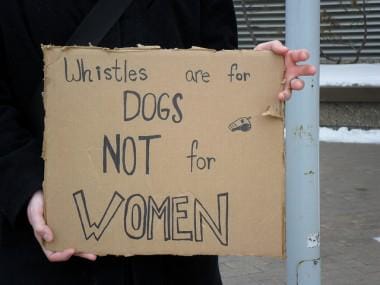 Whistles are for
DOGS
NOT for
WOMEN